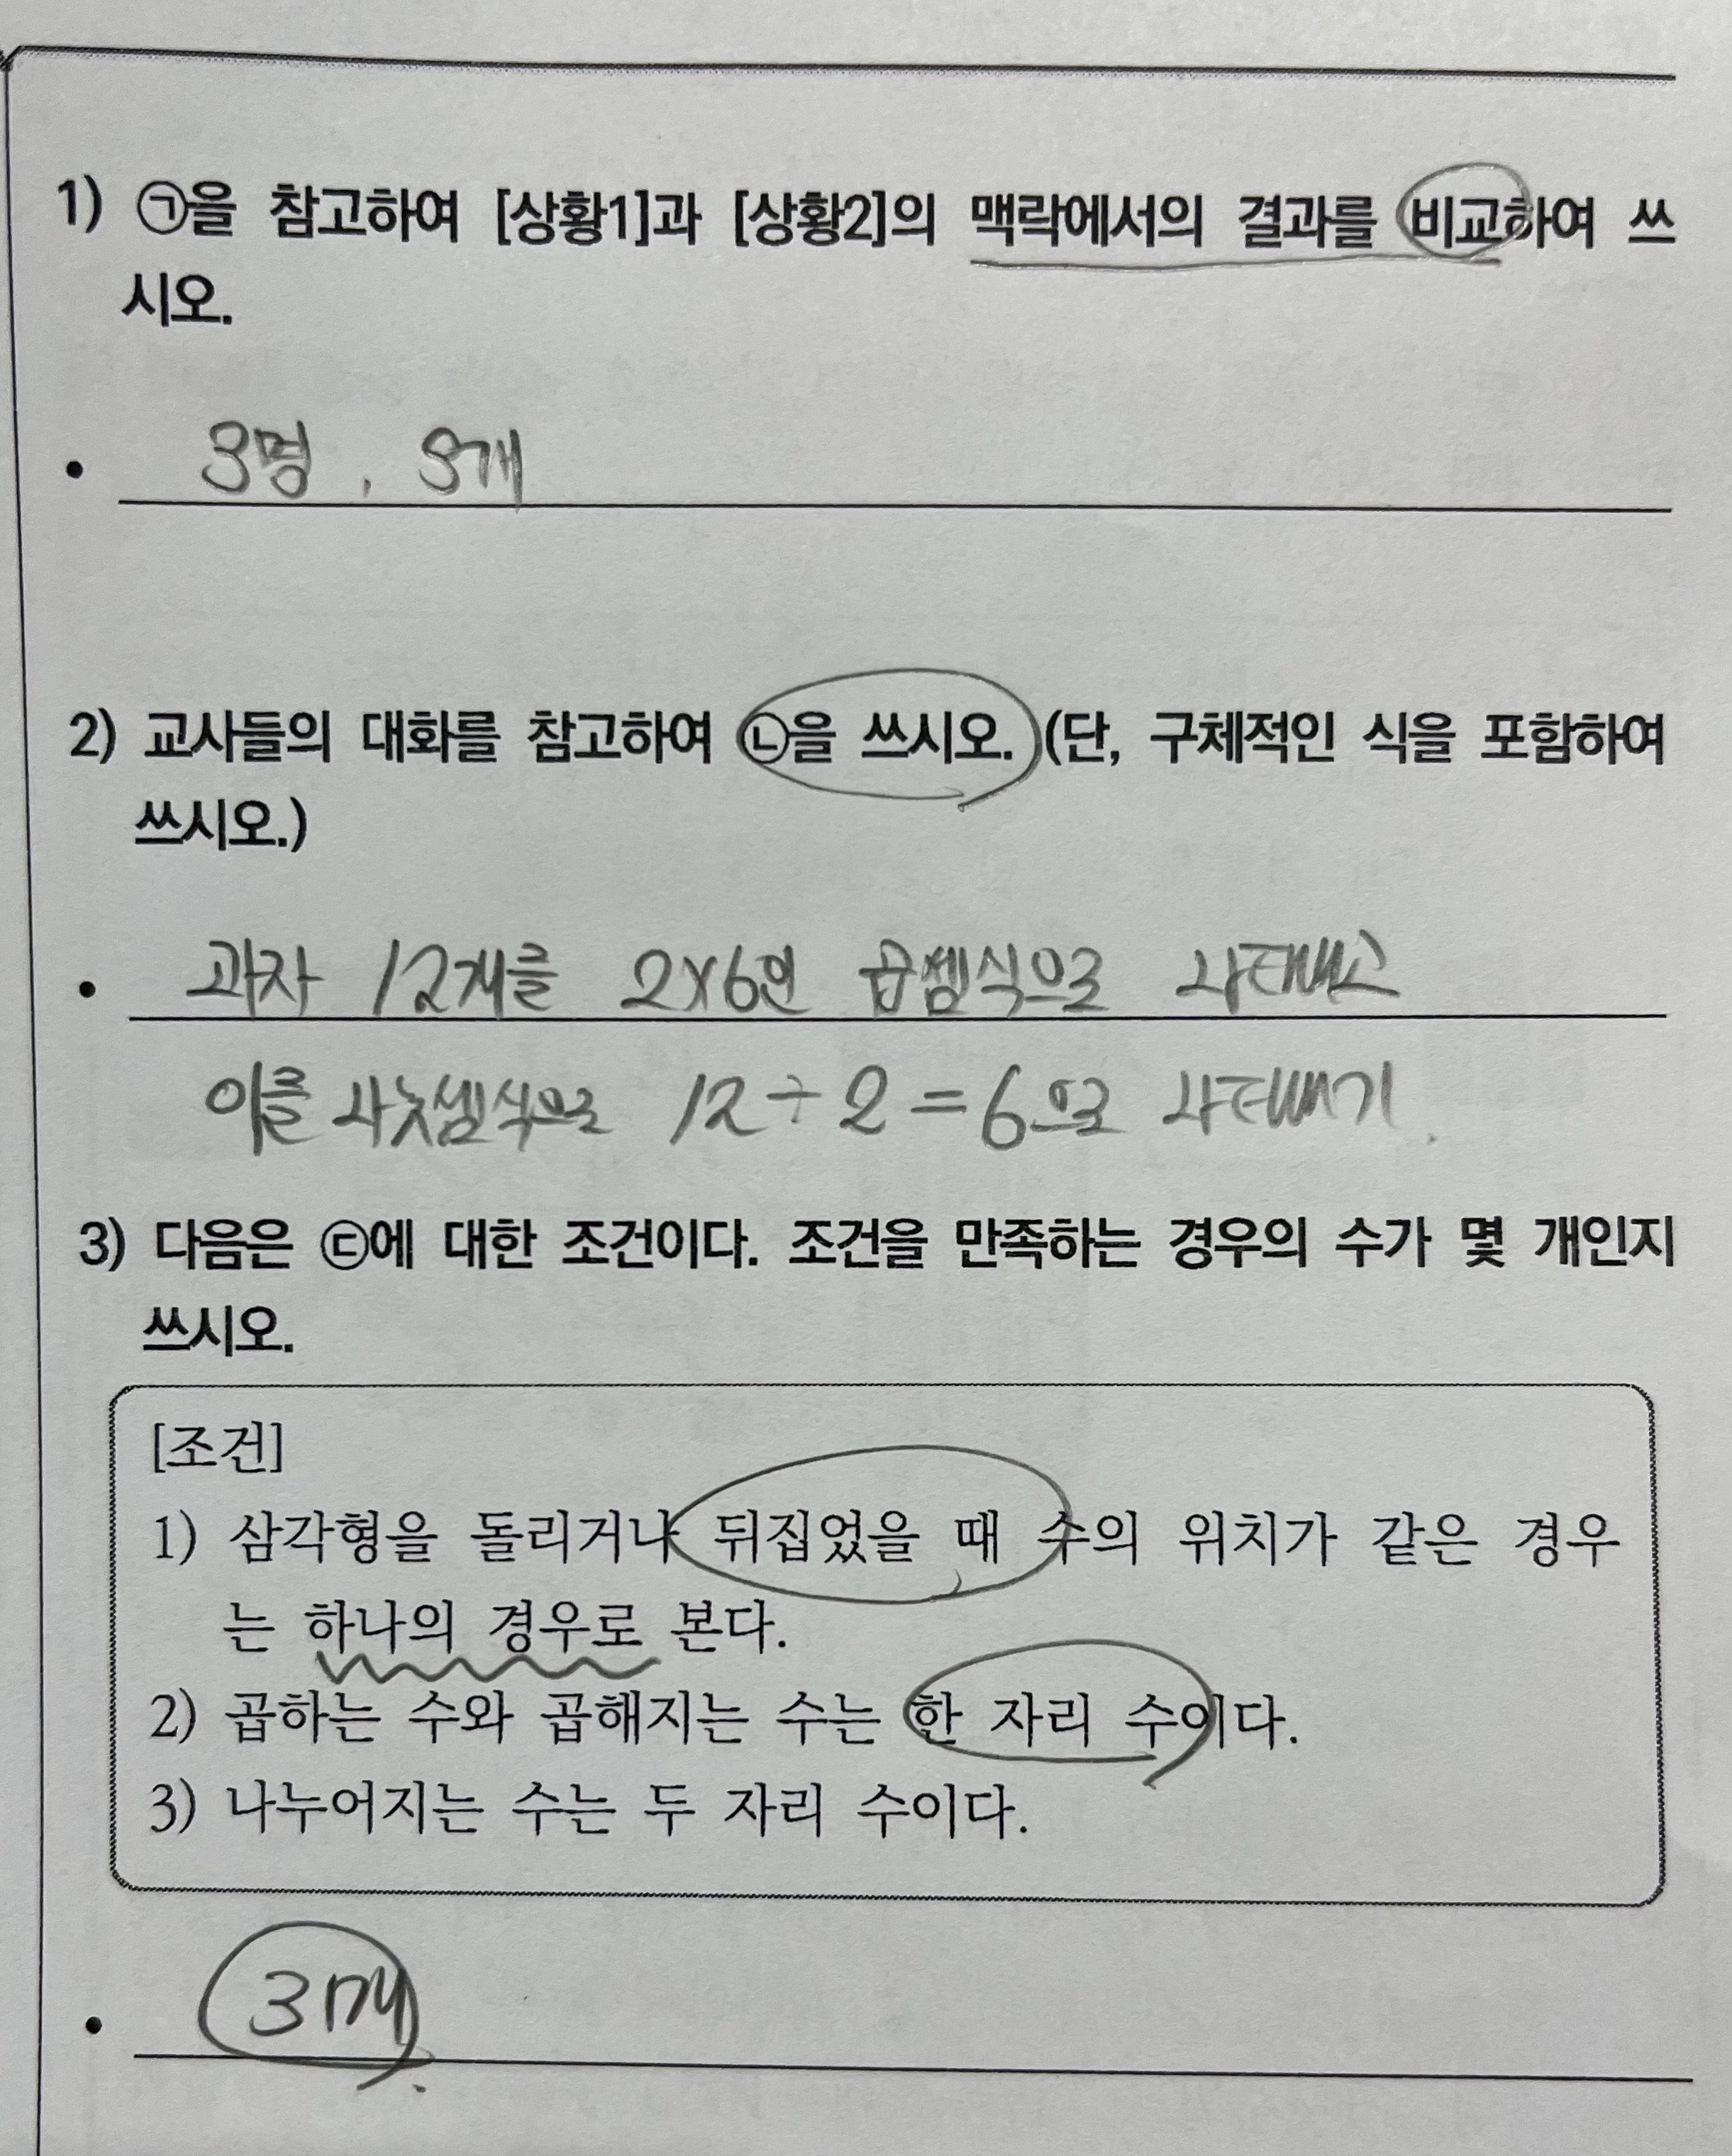 1) ㉠을 참고하여 [상황1]과 [상황2]의 맥락에서의 결과를 비교하여 쓰
시오.
• 3명, 3개
2) 교사들의 대화를 참고하여 ㉡을 쓰시오. (단, 구체적인 식을 포함하여
쓰시오.)
• 과자 12개를 2×6인 곱셈식으로 나타내고
이를 나눗셈식으로 12÷2=6으로 나타내기.
3) 다음은 ㉢에 대한 조건이다. 조건을 만족하는 경우의 수가 몇 개인지
쓰시오.
[조건]
1) 삼각형을 돌리거나 뒤집었을 때 수의 위치가 같은 경우
는 하나의 경우로 본다.
2) 곱하는 수와 곱해지는 수는 한 자리 수이다.
3) 나누어지는 수는 두 자리 수이다.
• 3개.